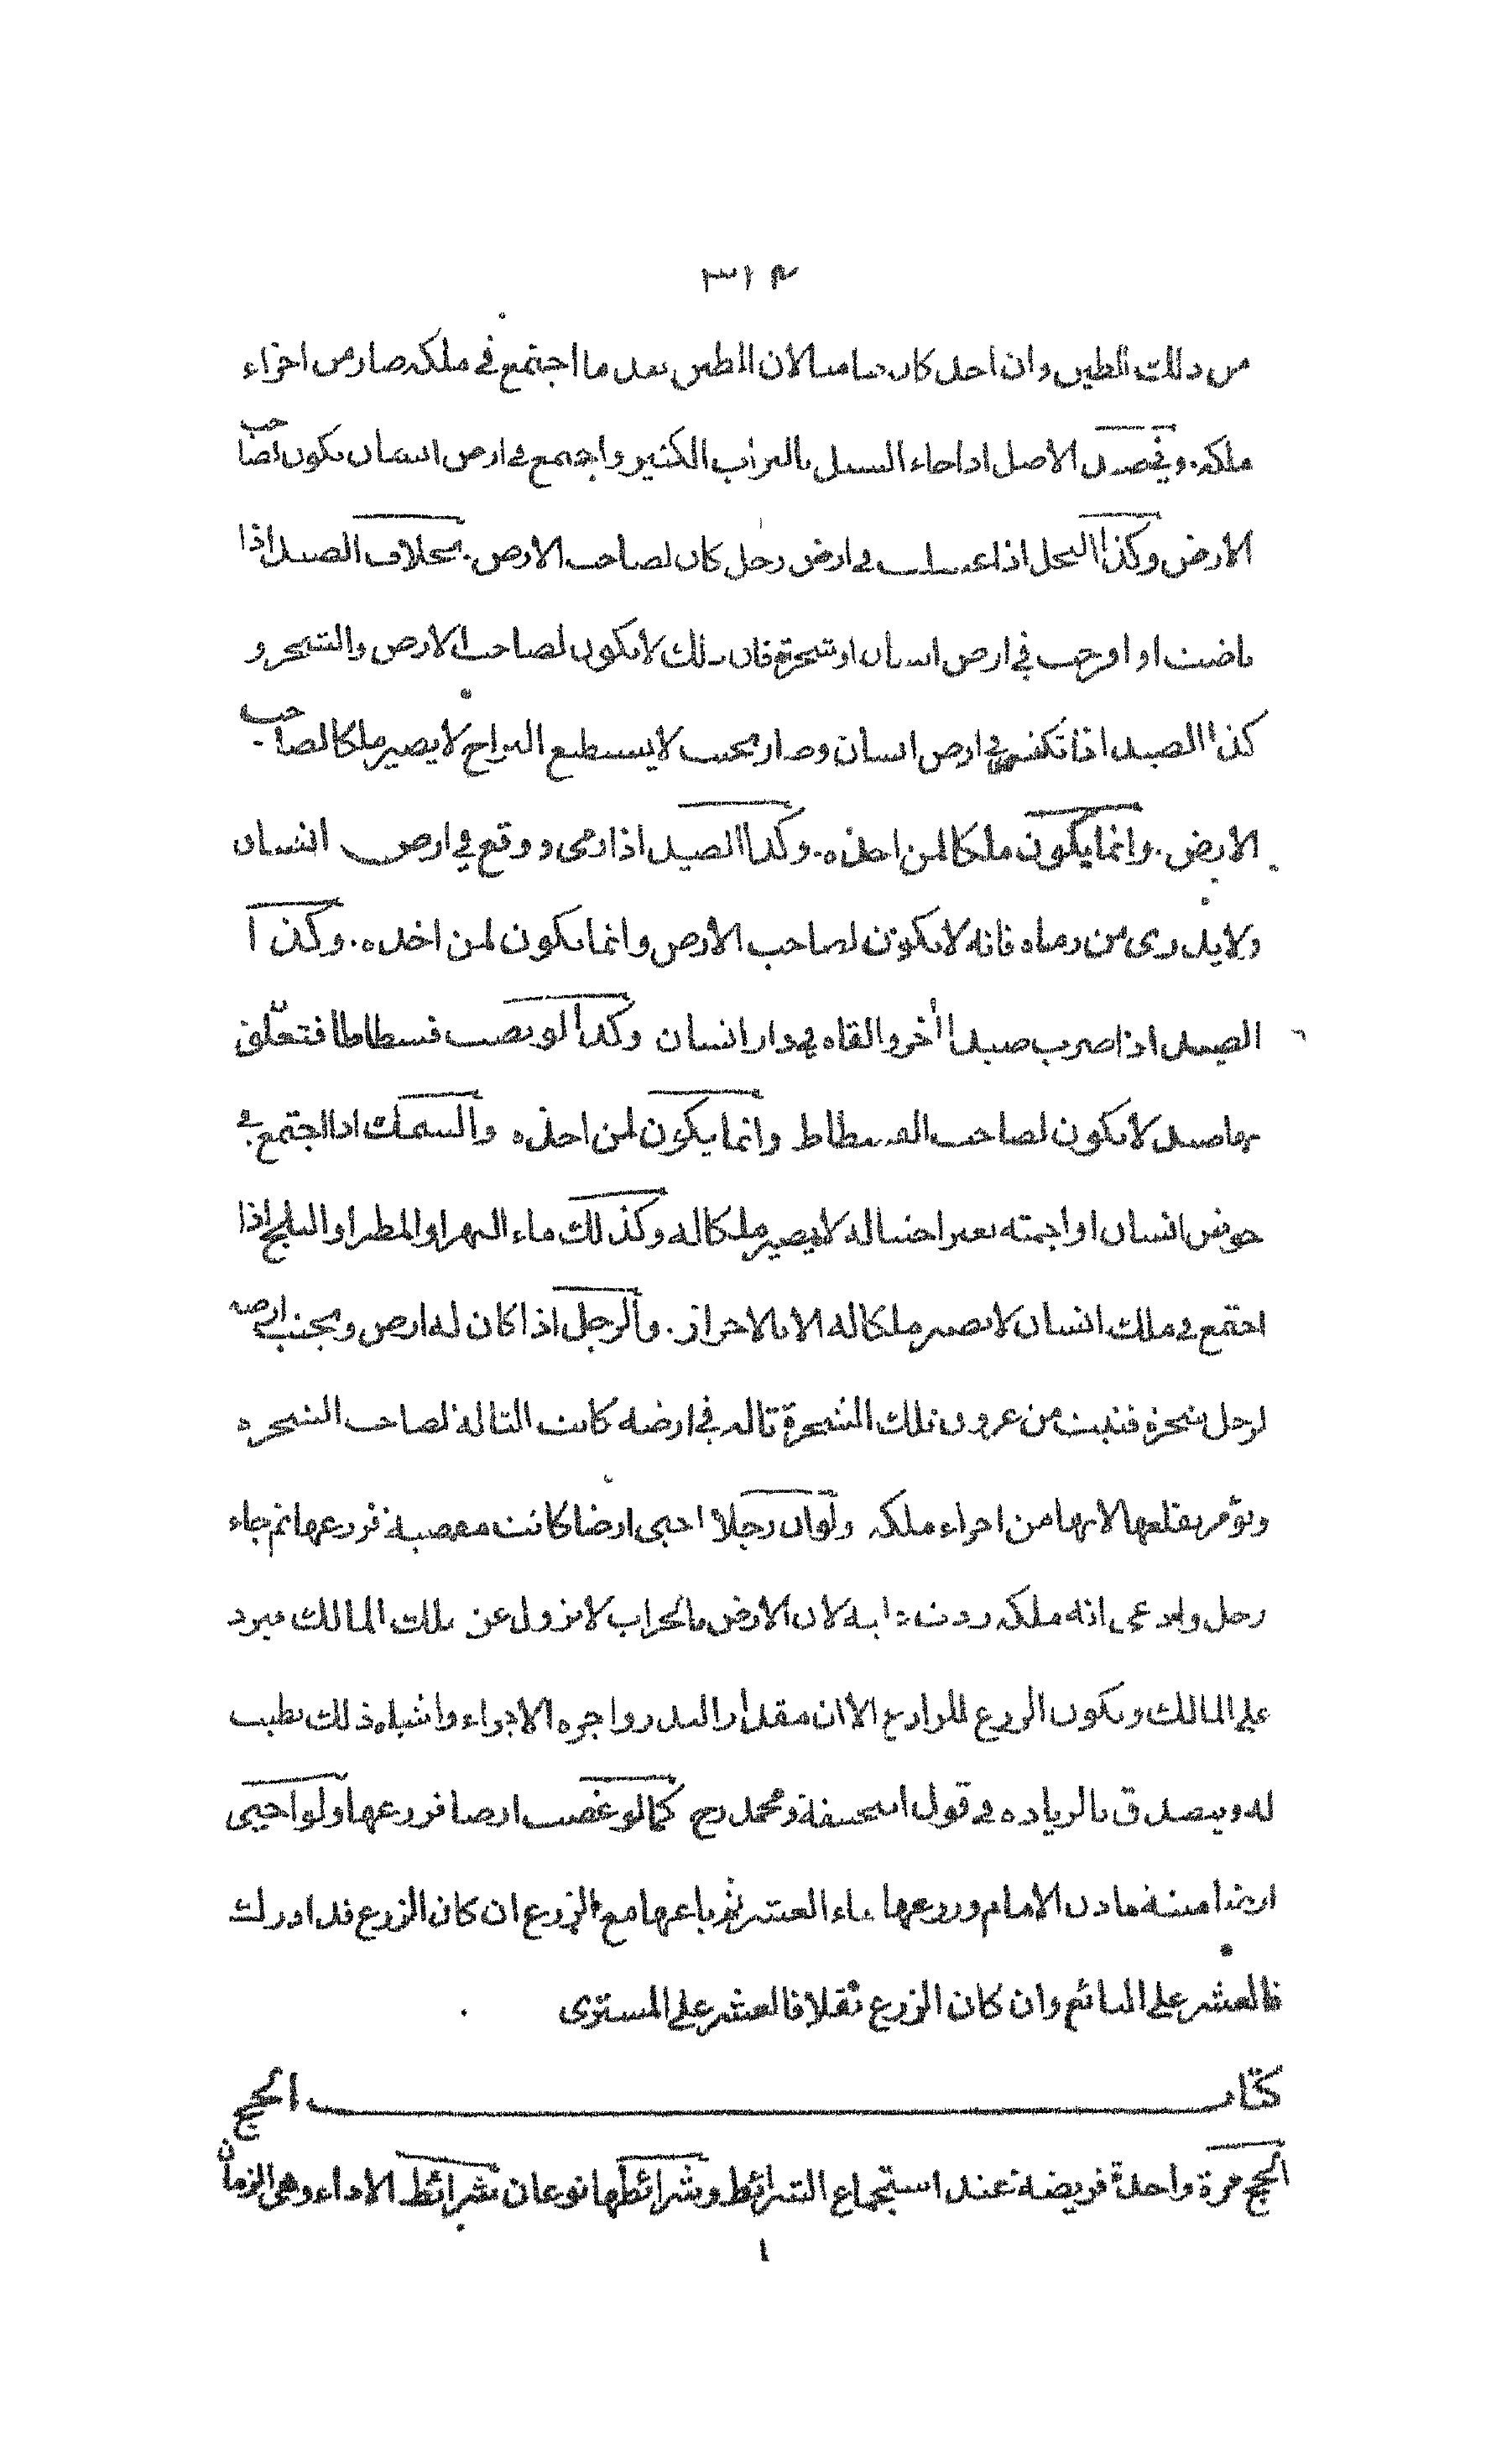 ٣١٣
من ذلك الطين وان اخذ كان ضامنا لان الطين بعد ما اجتمع في ملكه صار من اجزاء
ملكه. وفي الاصل اذا جاء السيل بالتراب الكثير واجتمع في ارض انسان يكون لصاحب
الارض وكذا النحل اذا عسلت في ارض رجل كان لصاحب الارض. بخلاف الصيد اذا
باضت او افرخت في ارض انسان او شجرة فان ذلك لا يكون لصاحب الارض والشجر و
كذا الصيد اذا تكنس في ارض انسان وصار بحيث لا يستطيع البراح لا يصير ملكا لصاحب
الارض. وانما يكون ملكا لمن اخذه. وكذا الصيد اذا رمى ووقع في ارض انسان
ولا يدرى من رماه فانه لا يكون لصاحب الارض وانما يكون لمن اخذه. وكذا
الصيد اذا ضرب صيدا آخر والقاه في دار انسان وكذا لو نصب فسطاطا فتعلق
بها صيد لا يكون لصاحب الفسطاط وانما يكون لمن اخذه والسمك اذا اجتمع في
حوض انسان او اجمته بغير احتياله لا يصير ملكا له وكذلك ماء النهر او المطر او الثلج اذا
اجتمع في ملك انسان لا يصير ملكا له الا بالاحراز. والرجل اذا كان له ارض وبجنب ارضه
لرجل شجرة فنبت من عروق تلك الشجرة تالة في ارضه كانت التالة لصاحب الشجره
ويؤمر بقلعها لانها من اجزاء ملكه ولو ان رجلا احيى ارضا كانت مغصبة فزرعها ثم جاء
رجل وادعى انه ملكه ردت اليه لان الارض بالخراب لا تزول عن ملك المالك فيرد
على المالك ويكون الزرع للزارع الا ان مقدار البذر واجره الاجراء واشباه ذلك يطيب
له ويتصدق بالزياده في قول ابيحنيفة ومحمد رح كما لو غصب ارضا فزرعها ولو احيى
ارضا ميتة باذن الامام وزرعها بماء العشر ثم باعها مع الزرع ان كان الزرع قد ادرك
فالعشر على البائع وان كان الزرع بقلا فالعشر على المشترى
كتاب الحج
الحج مرة واحدة فريضة عند استجماع الشرائط وشرائطها نوعان شرائط الاداء وهي الزمان